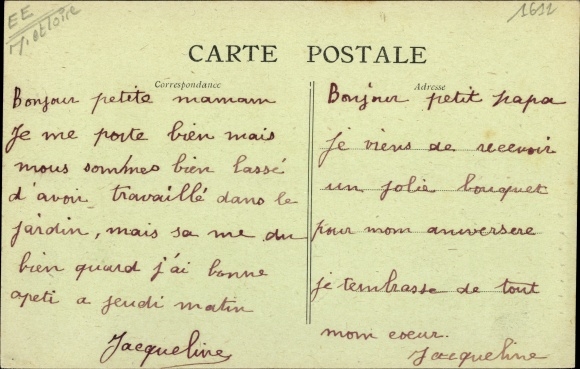 EE
M. et Loire
1612
CARTE POSTALE
Correspondance
Bonjour petite maman
Je me porte bien mais
nous sommes bien lassé
d'avoir travaillé dans le
jardin, mais sa me du
bien quard j'ai bonne
apeti a jeudi matin
Jacqueline
Adresse
Bonjour petit papa
je viens de recevoir
un jolie bouquet
pour mom aniversere
je tembrasse de tout
mom coeur.
Jacqueline